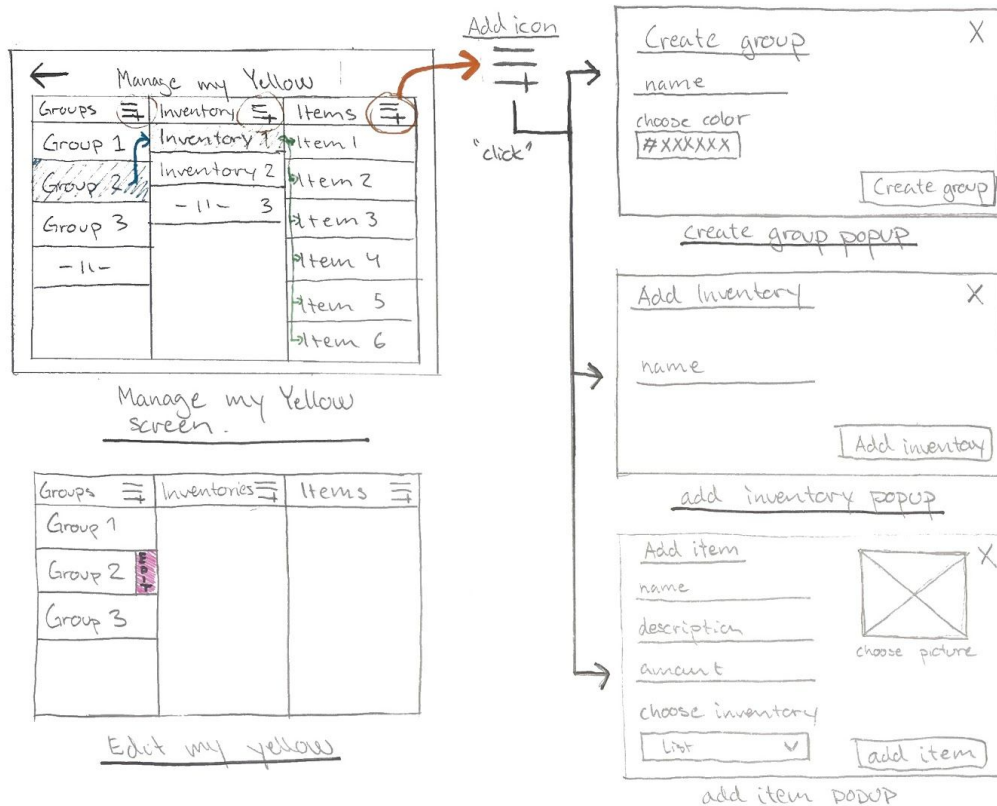 Manage my Yellow
Groups Inventory Items
Group 1 Inventory 1 Item 1
Group 2 Inventory 2 Item 2
Group 3 -11- 3 Item 3
-11- Item 4
Item 5
Item 6
Manage my Yellow
screen.
Groups Inventories Items
Group 1
Group 2
Group 3
Edit my yellow
Add icon
"click"
Create group X
name
choose color
#XXXXXX
Create group
create group popup
Add Inventory X
name
Add inventory
add inventory popup
Add item X
name
description
amount
choose picture
choose inventory
List
add item
add item popup